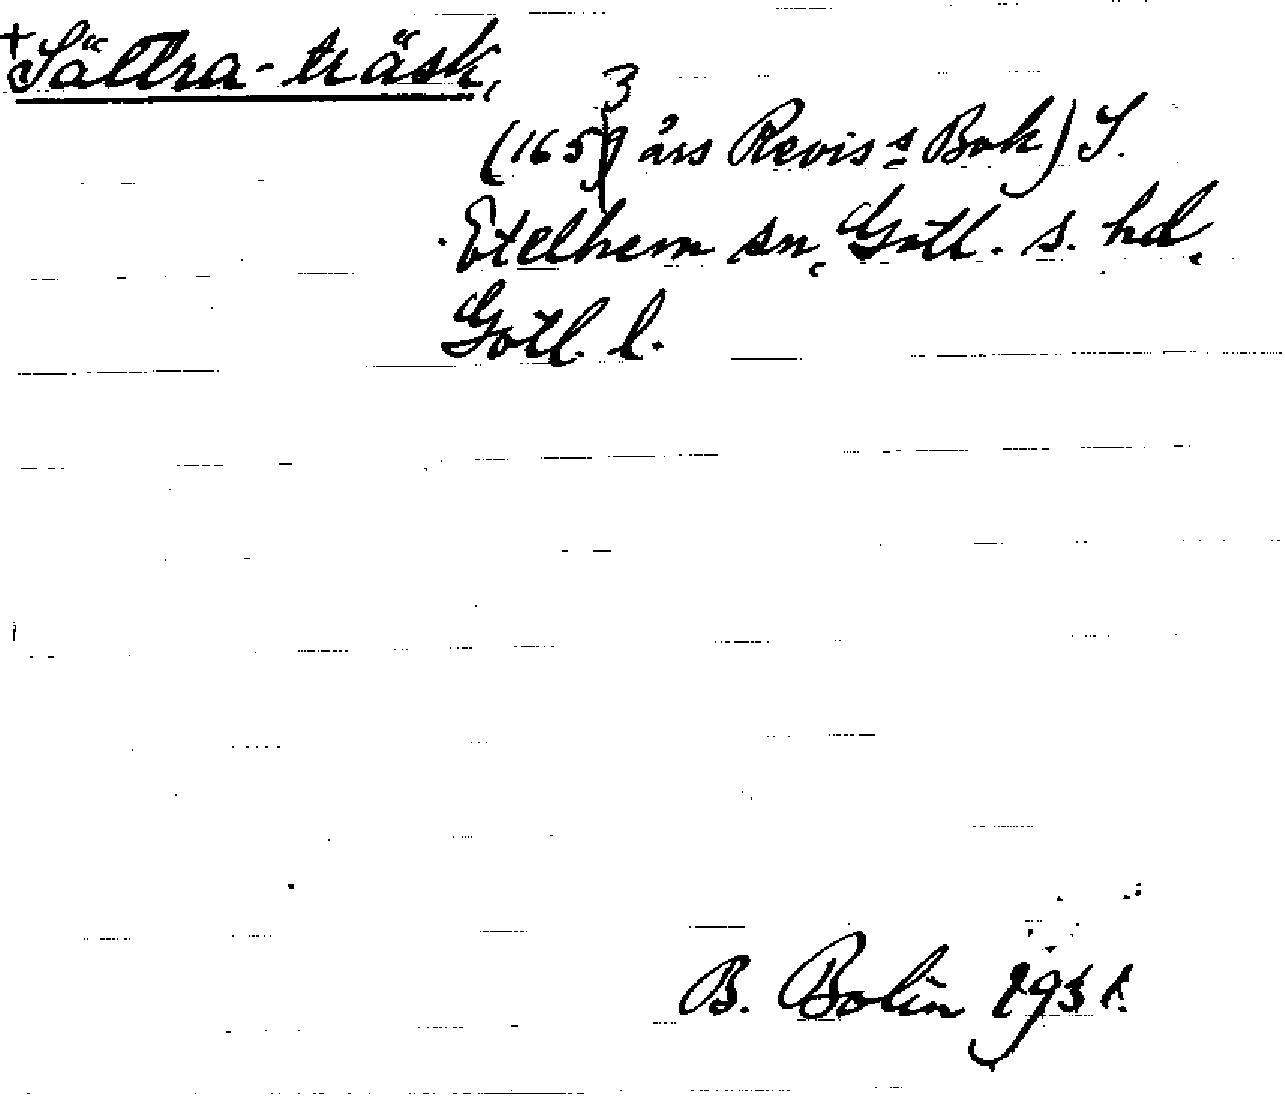 + Sättra-träsk,
(1653 års Revis:s Bok) S.
Etelhem sn, Gotl. s. hd,
Gotl. l.
B. Bolin 1931.